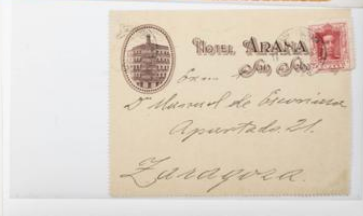 HOTEL ARANA
San Seb
Exmo
D. Manuel de Escoriaza
Apartado 21.
Zaragoza.